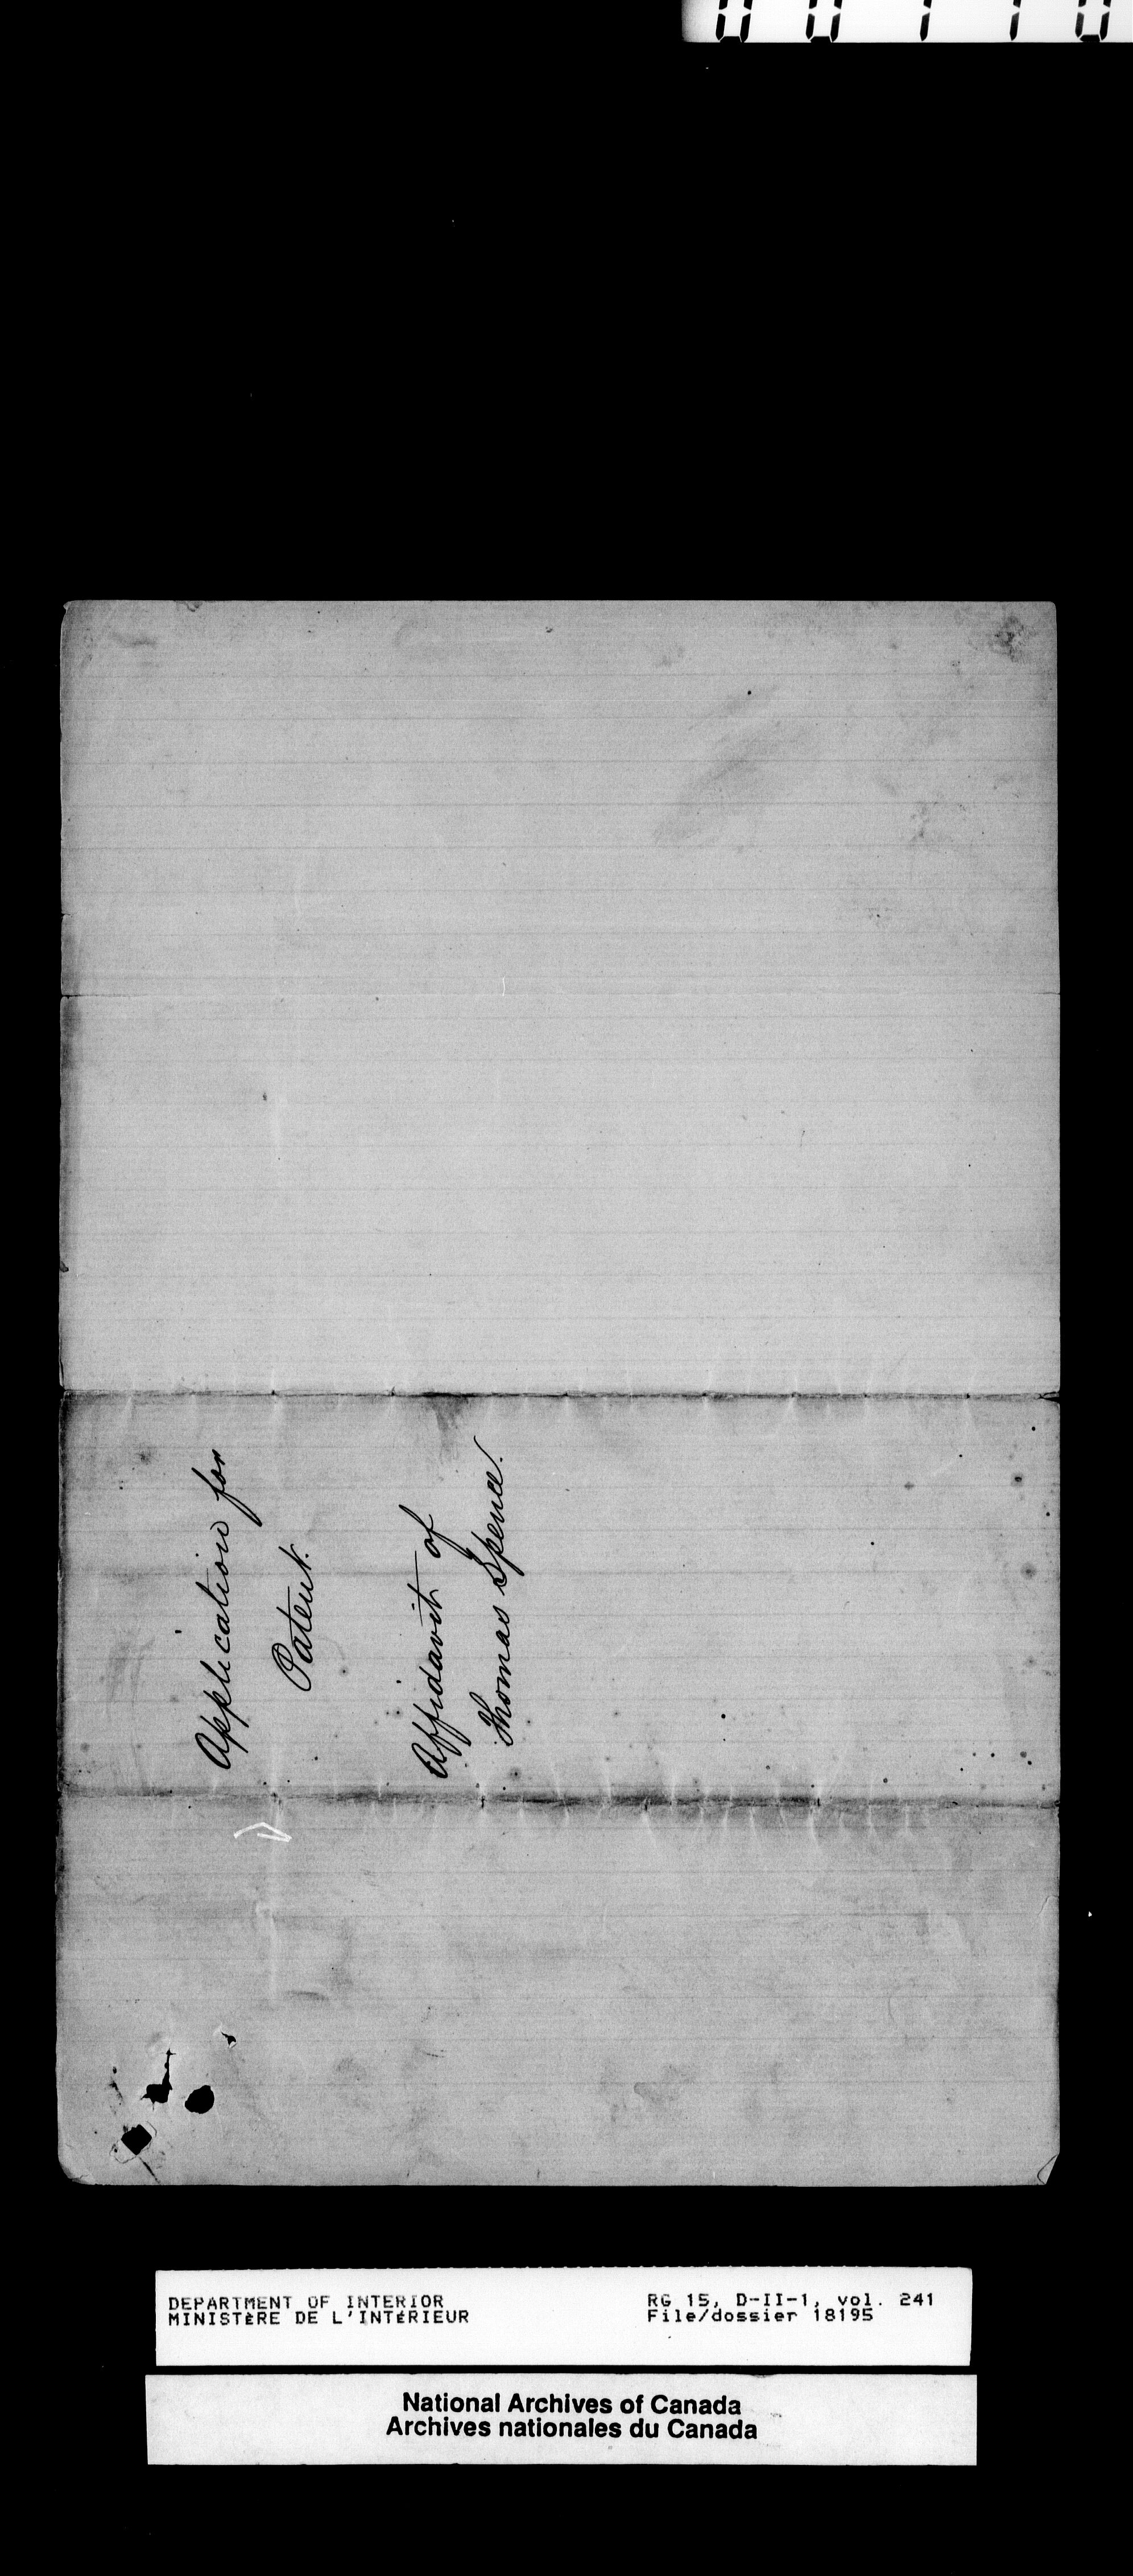 00110
Application for
Patent.
Affidavit of
Thomas Spence.
DEPARTMENT OF INTERIOR
MINISTÈRE DE L'INTÉRIEUR
RG 15, D-II-1, vol. 241
File/dossier 18195
National Archives of Canada
Archives nationales du Canada